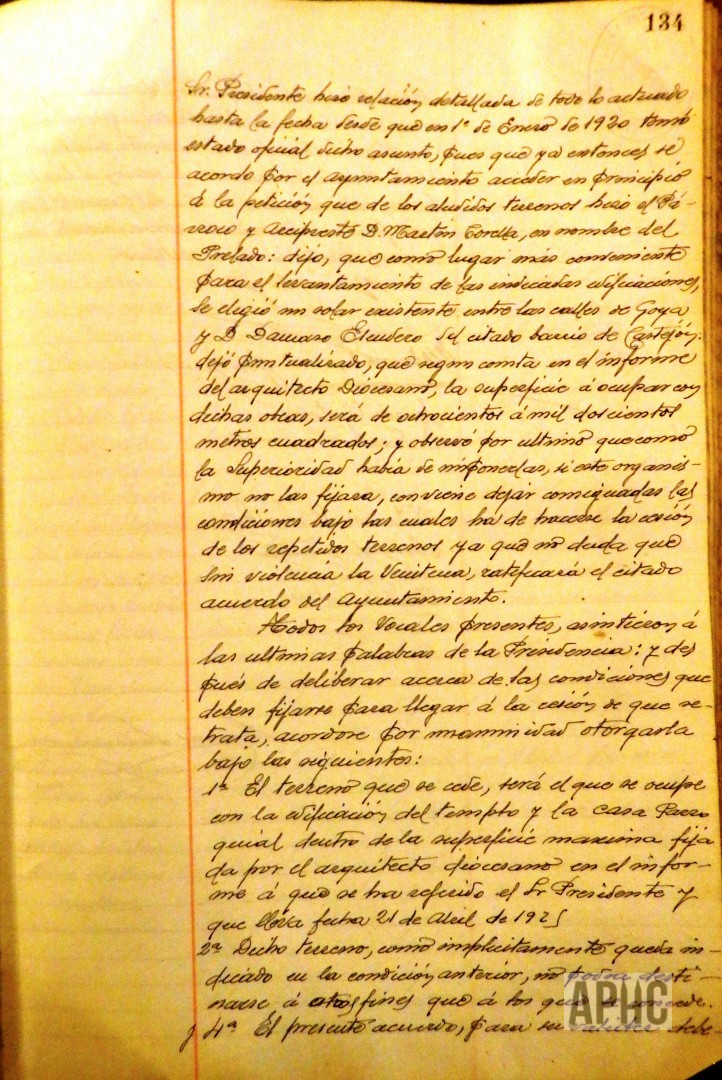 134
Sr. Presidente hizo relación detallada de todo lo actuado
hasta la fecha desde que en 1º de Enero de 1920 tomó
estado oficial dicho asunto, pues que ya entonces se
acordó por el Ayuntamiento acceder en principio
á la petición que de los aludidos terrenos hizo el Pá-
rroco y Arcipreste D. Martín Corella, en nombre del
Prelado: dijo, que como lugar más conveniente
para el levantamiento de las indicadas edificaciones,
se eligió un solar existente entre las calles de Goya
y D. Damaso Escudero del citado barrio de Castejón:
dejó puntualizado, que segun consta en el informe
del arquitecto Diocesano, la superficie á ocupar con
dichas obras, será de ochocientos á mil doscientos
metros cuadrados; y observó por ultimo que como
la Superioridad habia de imponerlas, si este organis-
mo no las fijara, conviene dejar consignadas las
condiciones bajo las cuales ha de hacerse la cesión
de los repetidos terrenos ya que no duda que
sin violencia la Veintena, ratificará el citado
acuerdo del Ayuntamiento.
Todos los Vocales presentes, asintieron á
las ultimas palabras de la Presidencia: y des
pués de deliberar acerca de las condiciones que
deben fijarse para llegar á la cesión de que se
trata, acordose por unanimidad otorgarla
bajo las siguientes:
1ª El terreno que se cede, será el que se ocupe
con la edificación del templo y la casa Parro
quial dentro de la superficie maxima fija
da por el arquitecto diocesano en el infor-
me á que se ha referido el Sr Presidente y
que lleva fecha 21 de Abril de 1925
2ª Dicho terreno, como implicitamente queda in-
dicado en la condición anterior, no podra desti-
narse á otros fines que á los que se concede.
y 4ª El presente acuerdo, para su validez debe
APHC